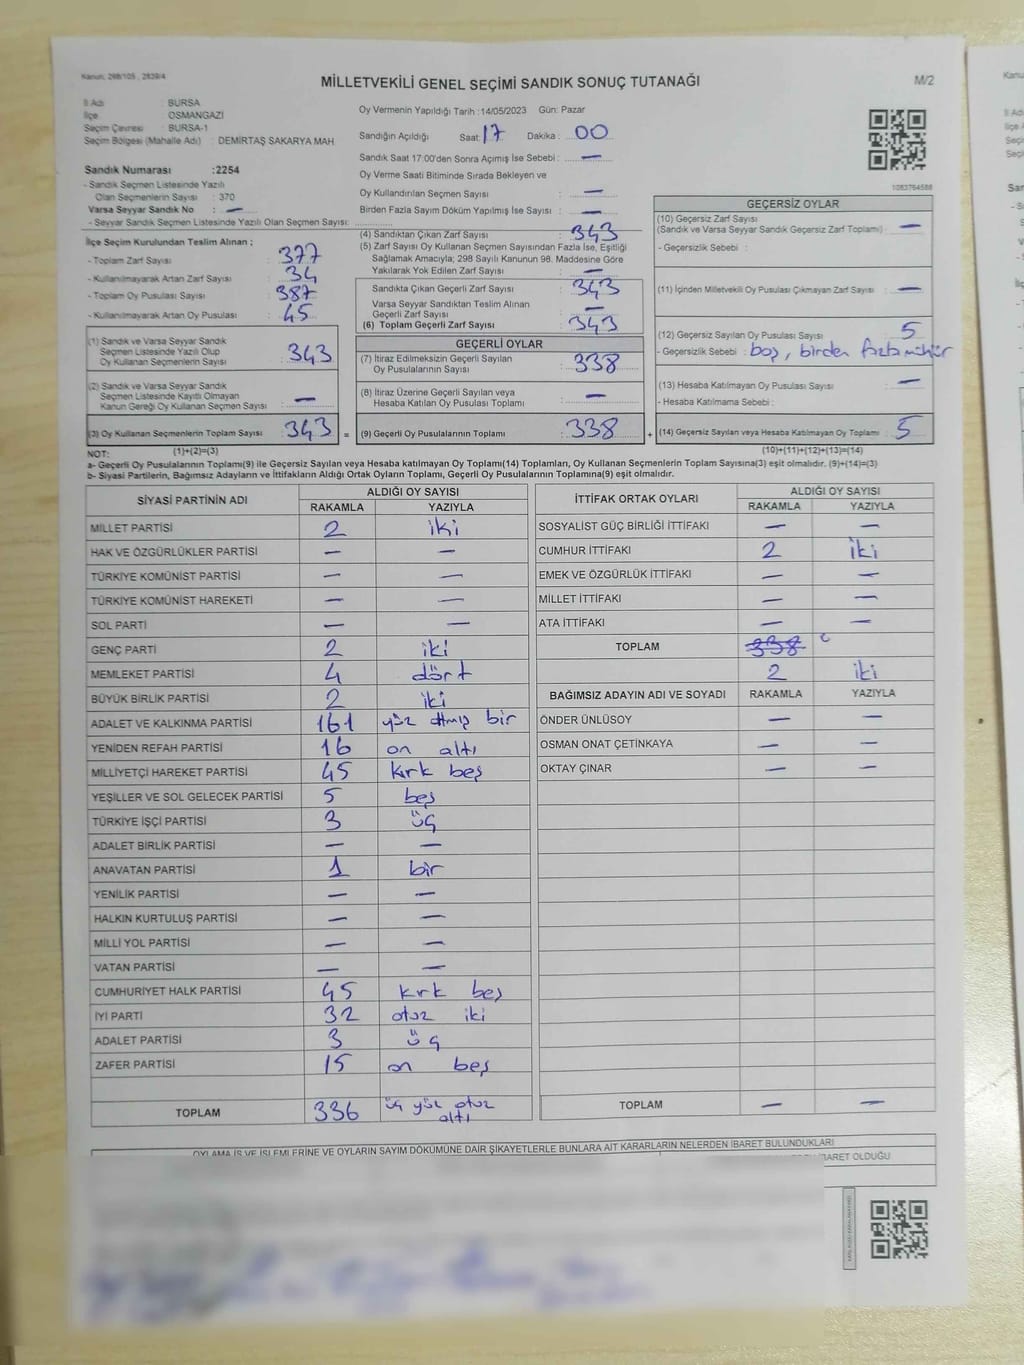 Kanun: 298/105 , 2839/4
MİLLETVEKİLİ GENEL SEÇİMİ SANDIK SONUÇ TUTANAĞI
M/2
İl Adı : BURSA
İlçe : OSMANGAZİ
Seçim Çevresi : BURSA-1
Seçim Bölgesi (Mahalle Adı) : DEMİRTAŞ SAKARYA MAH
Sandık Numarası :2254
- Sandık Seçmen Listesinde Yazılı
Olan Seçmenlerin Sayısı : 370
Varsa Seyyar Sandık No : —
- Seyyar Sandık Seçmen Listesinde Yazılı Olan Seçmen Sayısı:
Oy Vermenin Yapıldığı Tarih :14/05/2023 Gün: Pazar
Sandığın Açıldığı Saat: 17 Dakika : 00
Sandık Saat 17:00'den Sonra Açımış İse Sebebi : —
Oy Verme Saati Bitiminde Sırada Bekleyen ve
Oy Kullandırılan Seçmen Sayısı : —
Birden Fazla Sayım Döküm Yapılmış İse Sayısı : —
1083764588
İlçe Seçim Kurulundan Teslim Alınan ;
- Toplam Zarf Sayısı : 377
- Kullanılmayarak Artan Zarf Sayısı : 34
- Toplam Oy Pusulası Sayısı : 387
- Kullanılmayarak Artan Oy Pusulası : 45
(1) Sandık ve Varsa Seyyar Sandık
Seçmen Listesinde Yazılı Olup
Oy Kullanan Seçmenlerin Sayısı : 343
(2) Sandık ve Varsa Seyyar Sandık
Seçmen Listesinde Kayıtlı Olmayan
Kanun Gereği Oy Kullanan Seçmen Sayısı : —
(3) Oy Kullanan Seçmenlerin Toplam Sayısı : 343 =
(4) Sandıktan Çıkan Zarf Sayısı : 343
(5) Zarf Sayısı Oy Kullanan Seçmen Sayısından Fazla İse, Eşitliği
Sağlamak Amacıyla; 298 Sayılı Kanunun 98. Maddesine Göre
Yakılarak Yok Edilen Zarf Sayısı : —
Sandıkta Çıkan Geçerli Zarf Sayısı : 343
Varsa Seyyar Sandıktan Teslim Alınan
Geçerli Zarf Sayısı : —
(6) Toplam Geçerli Zarf Sayısı : 343
GEÇERLİ OYLAR
(7) İtiraz Edilmeksizin Geçerli Sayılan
Oy Pusulalarının Sayısı : 338
(8) İtiraz Üzerine Geçerli Sayılan veya
Hesaba Katılan Oy Pusulası Toplamı : —
(9) Geçerli Oy Pusulalarının Toplamı : 338 +
GEÇERSİZ OYLAR
(10) Geçersiz Zarf Sayısı
(Sandık ve Varsa Seyyar Sandık Geçersiz Zarf Toplamı) : —
- Geçersizlik Sebebi :
(11) İçinden Milletvekili Oy Pusulası Çıkmayan Zarf Sayısı : —
(12) Geçersiz Sayılan Oy Pusulası Sayısı : 5
- Geçersizlik Sebebi : boş, birden fazla mühür
(13) Hesaba Katılmayan Oy Pusulası Sayısı : —
- Hesaba Katılmama Sebebi :
(14) Geçersiz Sayılan veya Hesaba Katılmayan Oy Toplamı : 5
NOT: (1)+(2)=(3) (10)+(11)+(12)+(13)=(14)
a- Geçerli Oy Pusulalarının Toplamı(9) ile Geçersiz Sayılan veya Hesaba katılmayan Oy Toplamı(14) Toplamları, Oy Kullanan Seçmenlerin Toplam Sayısına(3) eşit olmalıdır. (9)+(14)=(3)
b- Siyasi Partilerin, Bağımsız Adayların ve İttifakların Aldığı Ortak Oyların Toplamı, Geçerli Oy Pusulalarının Toplamına(9) eşit olmalıdır.
SİYASİ PARTİNİN ADI ALDIĞI OY SAYISI
RAKAMLA YAZIYLA
MİLLET PARTİSİ 2 iki
HAK VE ÖZGÜRLÜKLER PARTİSİ — —
TÜRKİYE KOMÜNİST PARTİSİ — —
TÜRKİYE KOMÜNİST HAREKETİ — —
SOL PARTİ — —
GENÇ PARTİ 2 iki
MEMLEKET PARTİSİ 4 dört
BÜYÜK BİRLİK PARTİSİ 2 iki
ADALET VE KALKINMA PARTİSİ 161 yüz altmış bir
YENİDEN REFAH PARTİSİ 16 on altı
MİLLİYETÇİ HAREKET PARTİSİ 45 kırk beş
YEŞİLLER VE SOL GELECEK PARTİSİ 5 beş
TÜRKİYE İŞÇİ PARTİSİ 3 üç
ADALET BİRLİK PARTİSİ — —
ANAVATAN PARTİSİ 1 bir
YENİLİK PARTİSİ — —
HALKIN KURTULUŞ PARTİSİ — —
MİLLİ YOL PARTİSİ — —
VATAN PARTİSİ — —
CUMHURİYET HALK PARTİSİ 45 kırk beş
İYİ PARTİ 32 otuz iki
ADALET PARTİSİ 3 üç
ZAFER PARTİSİ 15 on beş
TOPLAM 336 üç yüz otuz altı
İTTİFAK ORTAK OYLARI ALDIĞI OY SAYISI
RAKAMLA YAZIYLA
SOSYALİST GÜÇ BİRLİĞİ İTTİFAKI — —
CUMHUR İTTİFAKI 2 iki
EMEK VE ÖZGÜRLÜK İTTİFAKI — —
MİLLET İTTİFAKI — —
ATA İTTİFAKI — —
TOPLAM 338
2 iki
BAĞIMSIZ ADAYIN ADI VE SOYADI RAKAMLA YAZIYLA
ÖNDER ÜNLÜSOY — —
OSMAN ONAT ÇETİNKAYA — —
OKTAY ÇINAR — —
TOPLAM — —
OYLAMA İŞ VE İŞLEMLERİNE VE OYLARIN SAYIM DÖKÜMÜNE DAİR ŞİKAYETLERLE BUNLARA AİT KARARLARIN NELERDEN İBARET BULUNDUKLARI
İBARET OLDUĞU